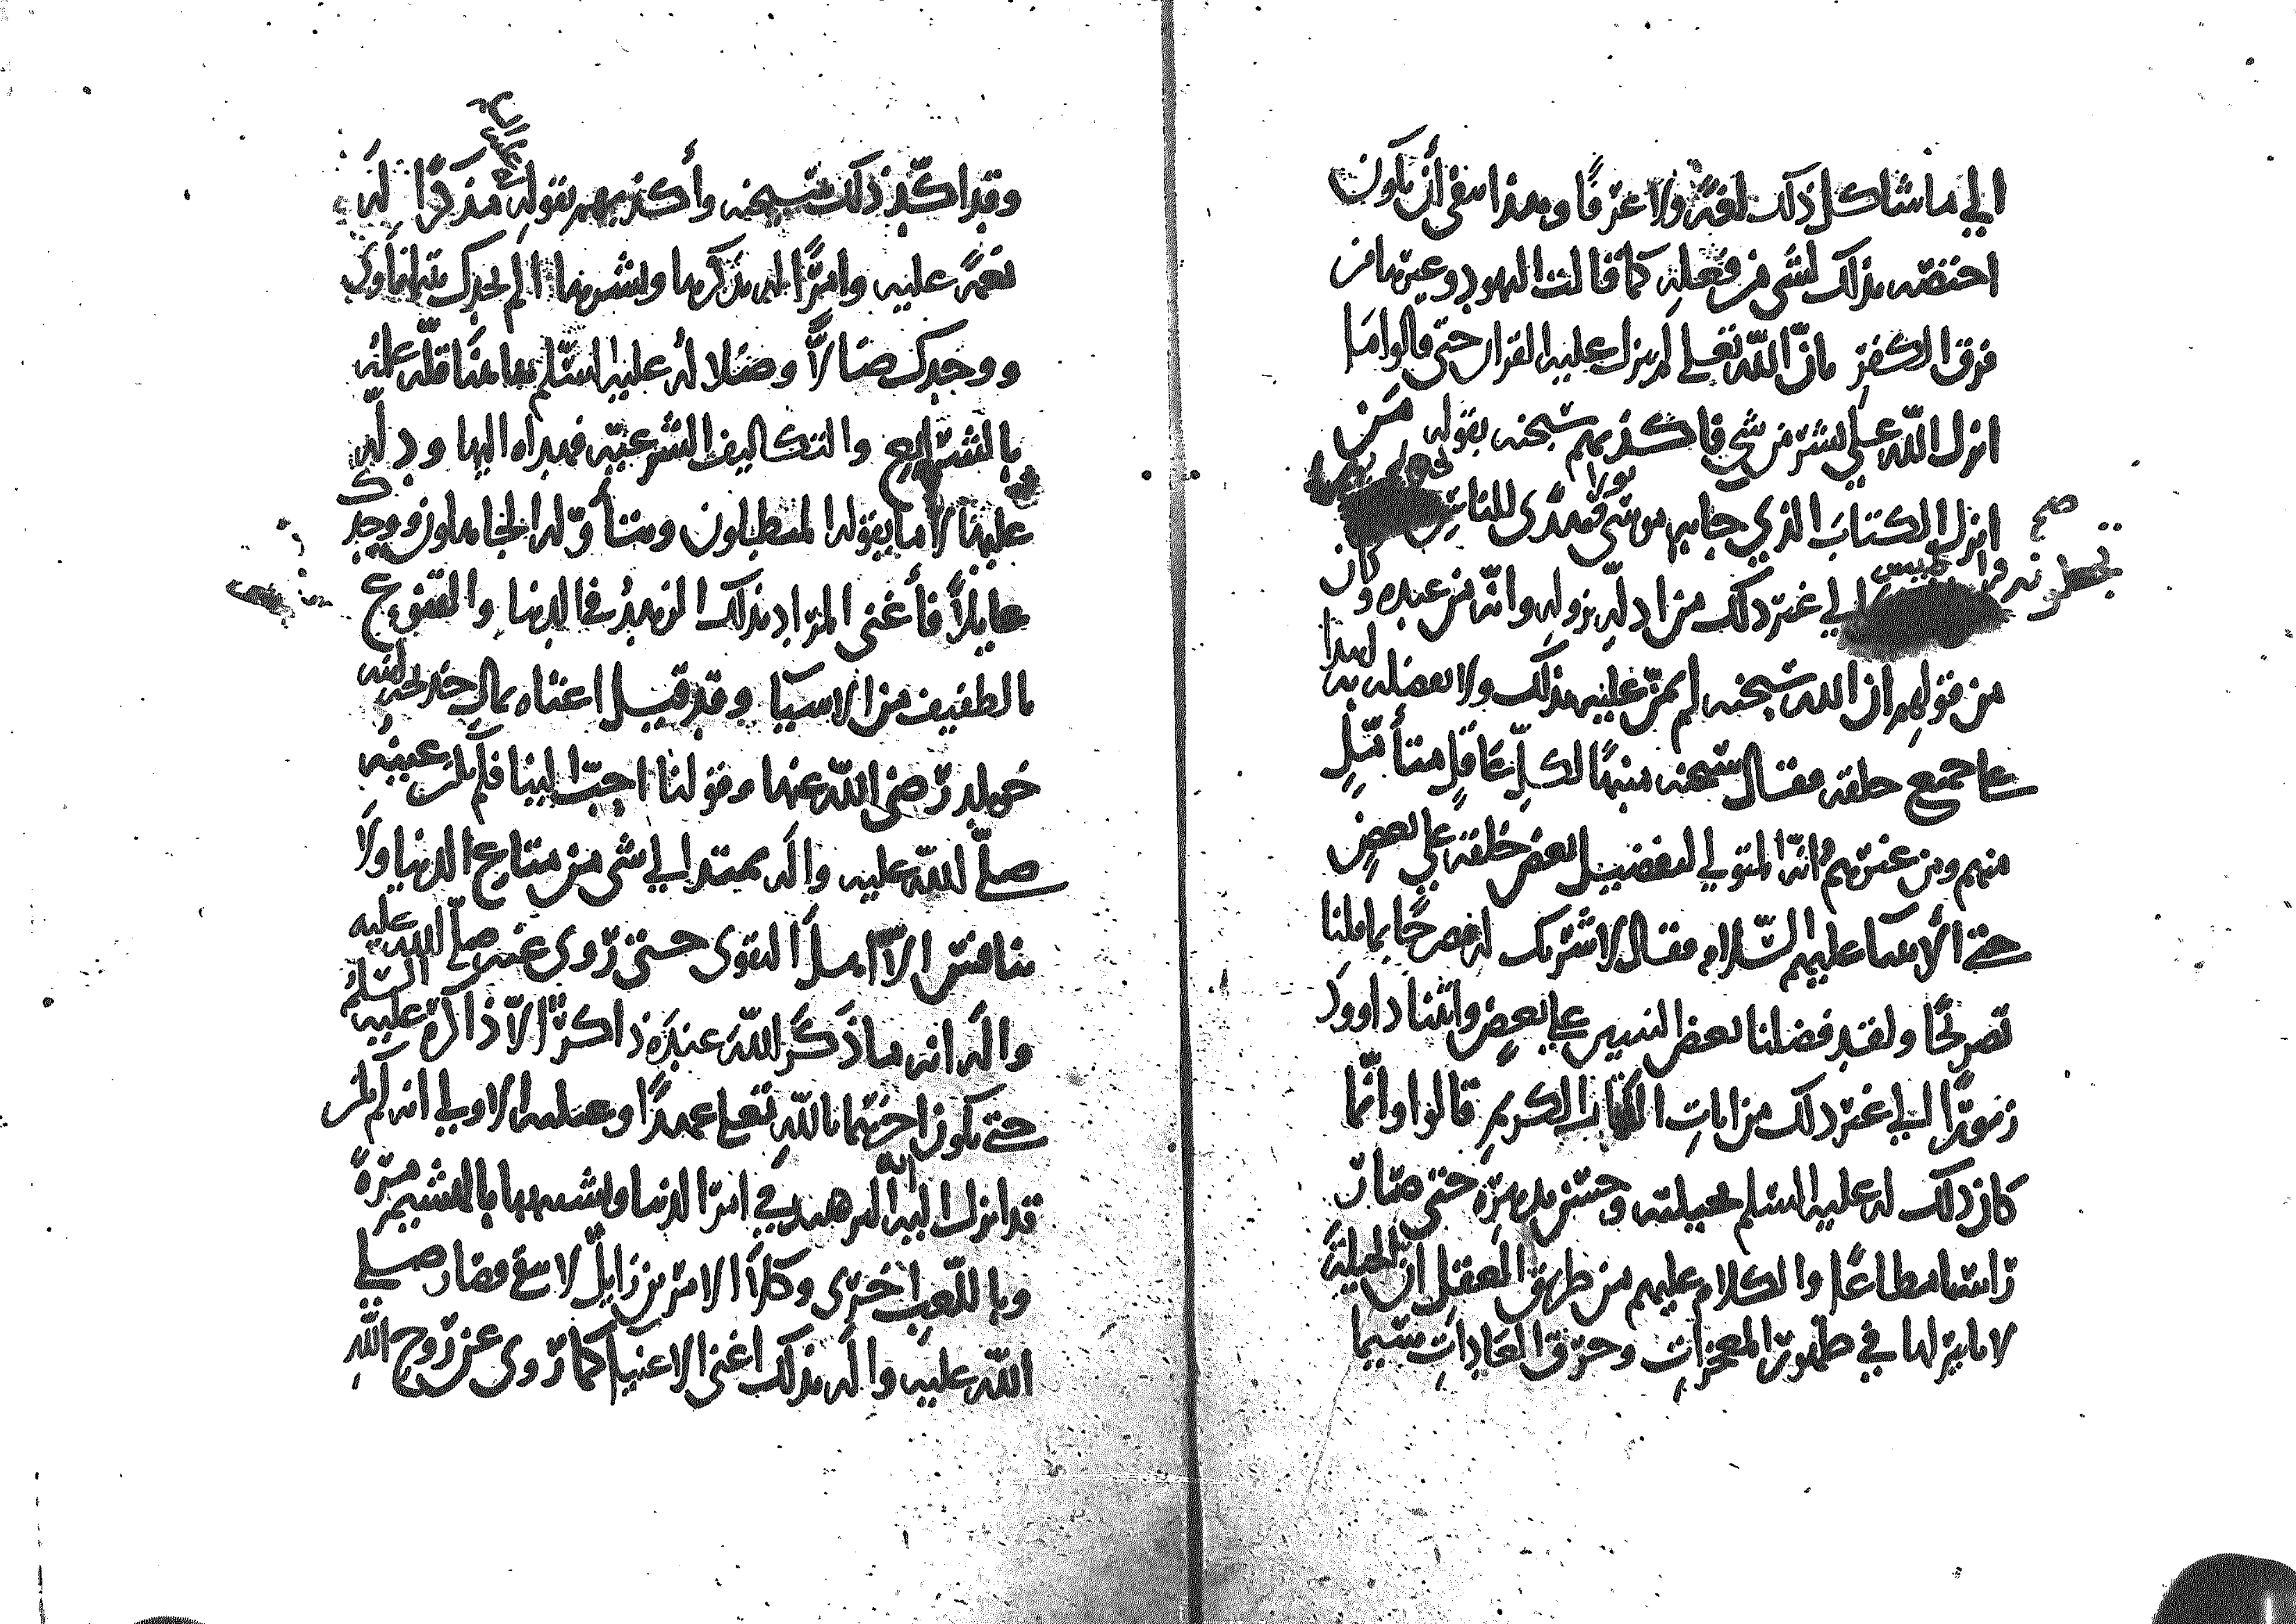 الى ما شاكل ذلك لغةً ولا عرفًا وبهذا ينفي أن يكون
اختصه بذلك لشي من فعله كما قالت اليهود وغيرها من
فرق الكفر بان الله تعلى لم ينزل عليه القران حتى قالوا ما
انزل الله على بشر من شي فاكذبهم سبحنه بقوله من
انزل الكتاب الذي جا به موسى نورا وهدًى للناس
تجعلونه قراطيس الى غير ذلك من ادلة نزوله وانه من عنده وكان
من قولهم ان الله سبحنه لم يمن عليه بذلك ولا فضله به
على جميع خلقه فقال سبحنه منبهًا لكل عاقل متأمل
منهم ومن غيرهم انه المتولي لتفضيل بعض خلقه على بعض
حتى الأنبيا عليهم السلام فقال لا شريك له مصرحًا بما قلنا
تصريحًا ولقد فضلنا بعض النبيين على بعض واتينا داوود
زبورًا الى غير ذلك من ايات الكتاب الكريم قالوا وانما
كان ذلك له عليه السلم بحيلته وحسن تدبيره حتى صار
رأسا مطاعًا والكلام عليهم من طريق العقل ان الحيلة
لا تاثير لها في ظهور المعجزات وخرق العادات سيما
وقد اكد ذلك سبحنه وأكذبهم بقوله مذكرًا له
نعمه عليه وامرًا له بذكرها ونشرها الم يجدك يتيما فاوى
ووجدك ضالًا وضلاله عليه السلم بما منا قلة علمه
بالشرايع والتكاليف الشرعيه فهداه اليها ودله
عليها لا ما يقوله المبطلون ويتأوله الجاهلون ووجدك
عايلًا فأغنى المراد بذلك الزهد في الدنيا والقنوع
بالطفيف من الاشيا وقد قيل اغناه بمال خديجه ابنه
خويلد رضى الله عنها وقولنا احب الينا فلم يكن عينه
صلى الله عليه واله يمتد الى شي من متاع الدنيا ولا
ينافس الا اهل التقوى حتى روي عنه صلى الله عليه
واله انه ما ذكر الله عنده ذاكرًا الا ذاكره عليه السلم
حتى يكون اخرهما بالله تعلى عهدًا وعلمه الاولى انه لم يكن
قد انزل اليه الله الزهد في امر الدنيا وتشبيهها بالهشيم مرة
وباللعب اخرى وكلا الامرين زايل لا يبقى فصار صلى
الله عليه واله بذلك اغنى الاغنيا كما روي عن روح الله